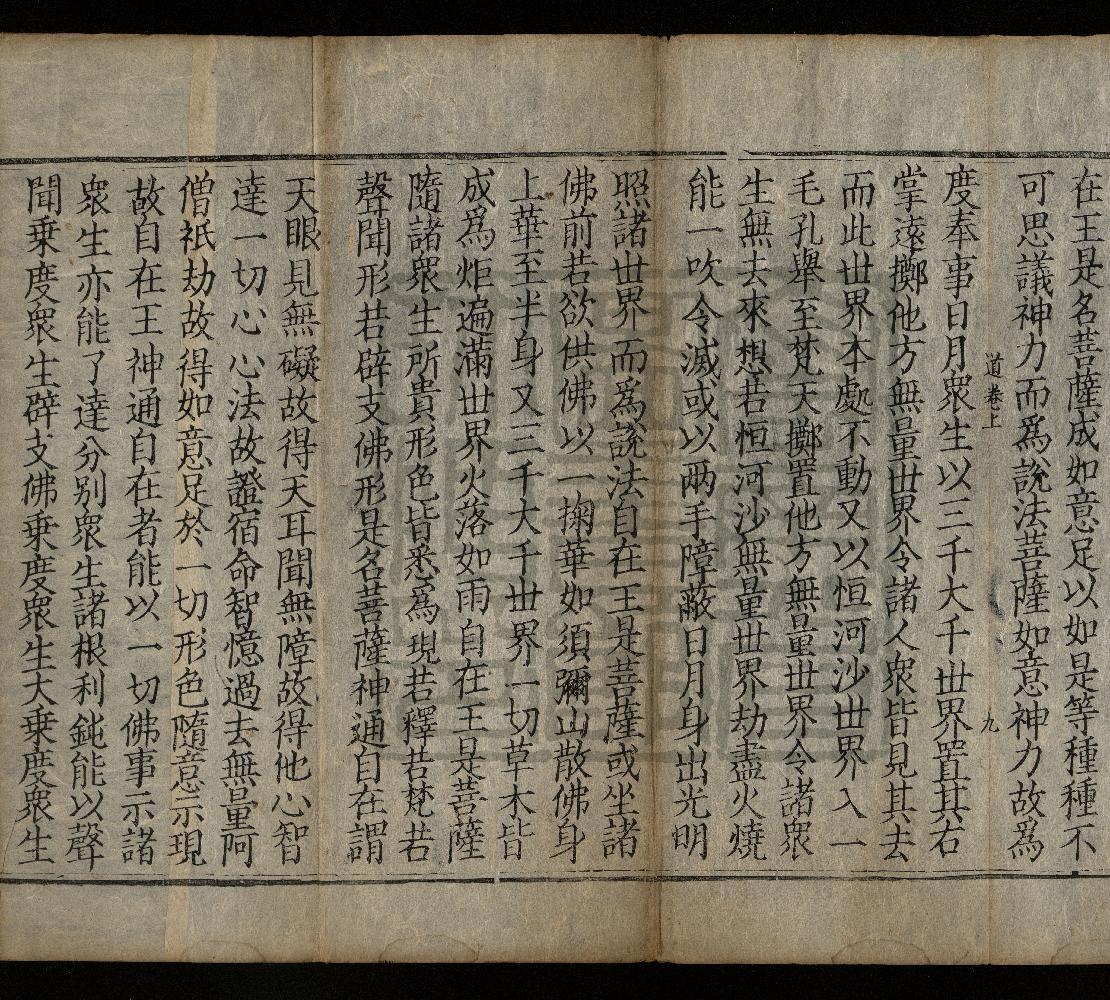 在王是名菩薩成如意足以如是等種種不
可思議神力而爲說法菩薩如意神力故爲
道卷上
九
度奉事日月衆生以三千大千世界置其右
掌遠擲他方無量世界令諸人衆皆見其去
而此世界本處不動又以恒河沙世界入一
毛孔舉至梵天擲置他方無量世界令諸衆
生無去來想若恒河沙無量世界劫盡火燒
能一吹令滅或以兩手障蔽日月身出光明
照諸世界而爲說法自在王是菩薩或坐諸
佛前若欲供佛以一掬華如須彌山散佛身
上華至半身又三千大千世界一切草木皆
成爲炬遍滿世界火落如雨自在王是菩薩
隨諸衆生所貴形色皆悉爲現若釋若梵若
聲聞形若辟支佛形是名菩薩神通自在謂
天眼見無礙故得天耳聞無障故得他心智
達一切心心法故證宿命智憶過去無量阿
僧祇劫故得如意足於一切形色隨意示現
故自在王神通自在者能以一切佛事示諸
衆生亦能了達分別衆生諸根利鈍能以聲
聞乗度衆生辟支佛乗度衆生大乗度衆生